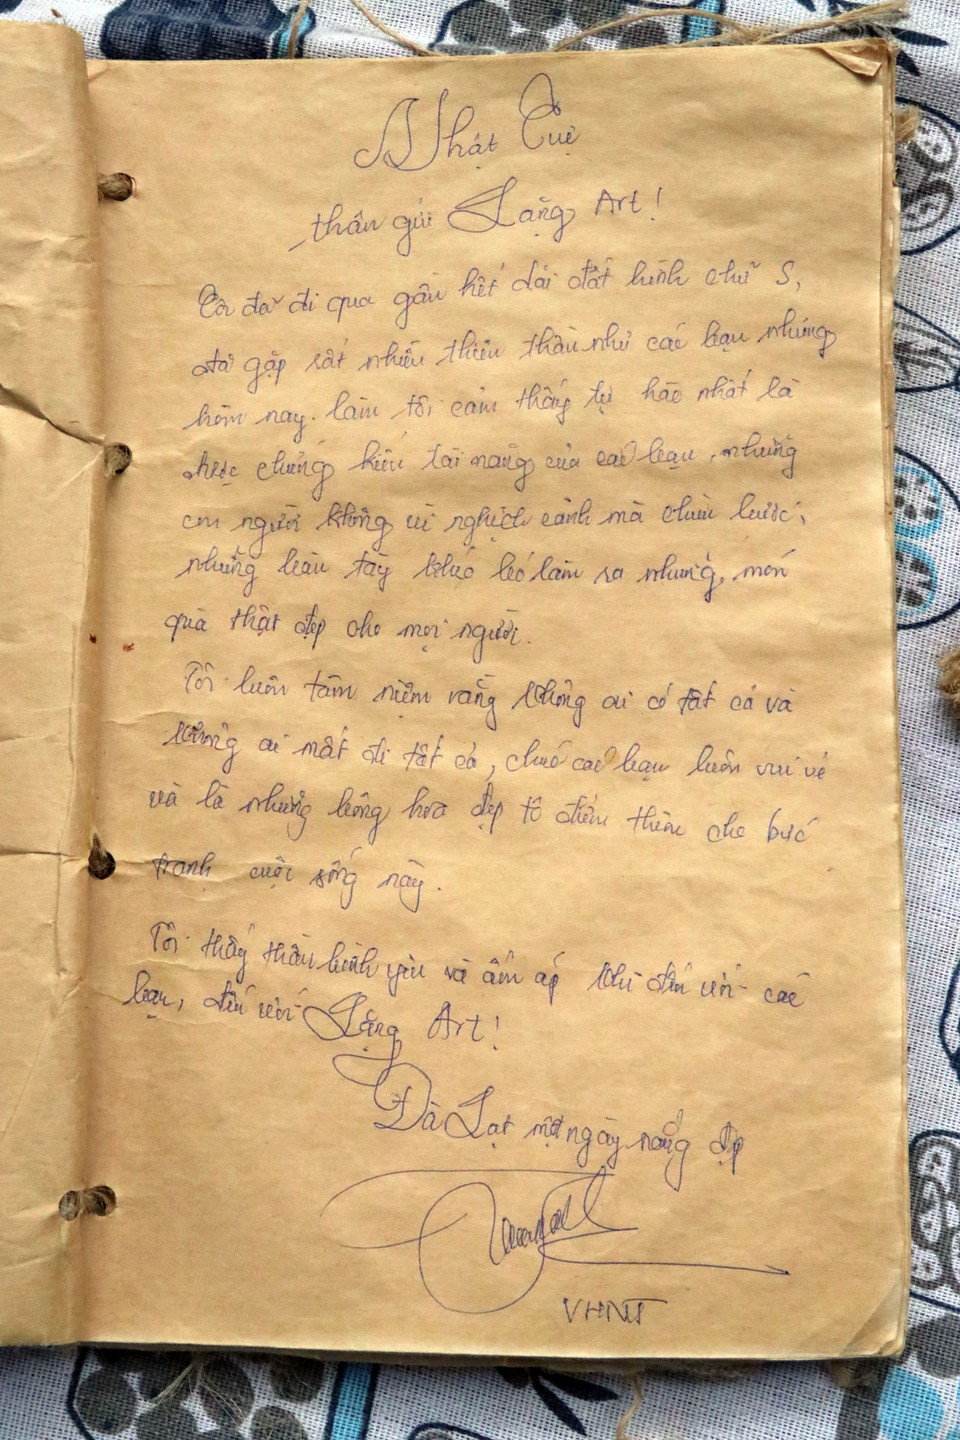 Nhật Cuệ
thân gửi Lặng Art!
Tôi đã đi qua gần hết dải đất hình chữ S,
đã gặp rất nhiều thiên thần như các bạn nhưng
hôm nay làm tôi cảm thấy tự hào nhất là
được chứng kiến tài năng của các bạn, những
con người không vì nghịch cảnh mà chùn bước,
những bàn tay khéo léo làm ra những món
quà thật đẹp cho mọi người.
Tôi luôn tâm niệm rằng không ai có tất cả và
không ai mất đi tất cả, chúc các bạn luôn vui vẻ
và là những bông hoa đẹp tô điểm thêm cho bức
tranh cuộc sống này.
Tôi thấy thân bình yên và ấm áp khi đến với các
bạn, đến với Lặng Art!
Đà Lạt một ngày nắng đẹp
VHNT